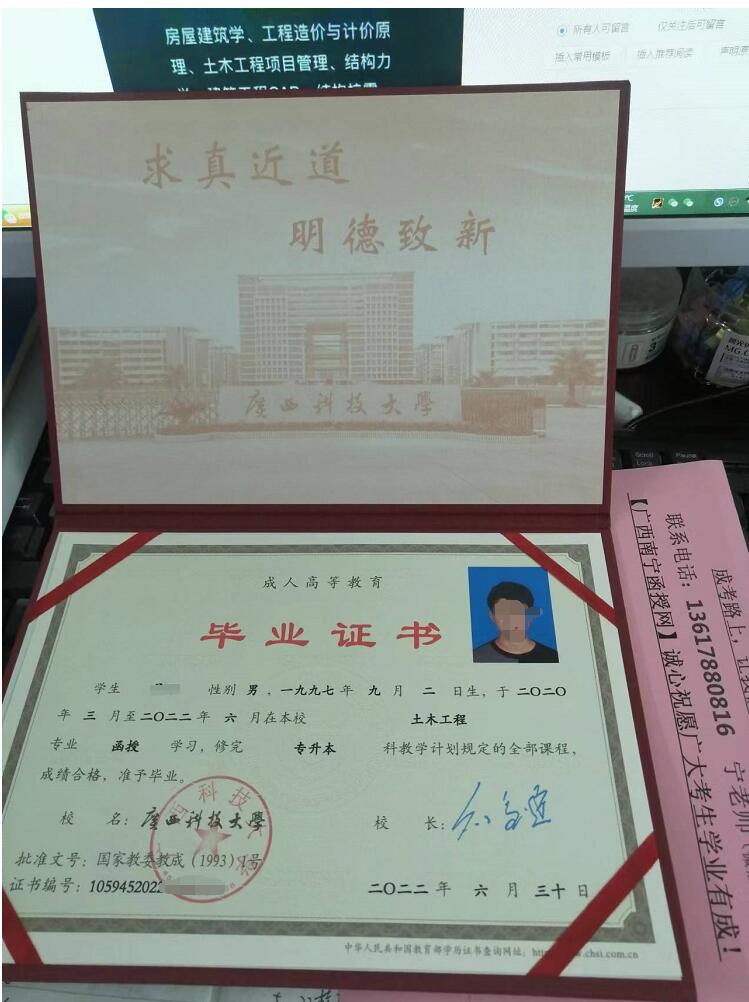 房屋建筑学、工程造价与计价原
理、土木工程项目管理、结构力
所有人可留言
仅关注后可留言
插入常用模板
插入推荐阅读
求真近道
明德致新
廣西科技大學
Scroll
Lock
Pause
成人高等教育
毕业证书
学生 性别 男，一九九七年 九 月 二 日生，于 二〇二〇
年 三 月至二〇二二年 六 月在本校 土木工程
专业 函授 学习，修完 专升本 科教学计划规定的全部课程，
成绩合格，准予毕业。
校 名：廣西科技大學
校 长：
批准文号：国家教委教成（1993）1号
证书编号：105945202
二〇二二 年 六 月 三十 日
中华人民共和国教育部学历证书查询网址：
chsi.com.cn
成考路上，
联系电话：13617880816 宁老师
【广西南宁函授网】诚心祝愿广大考生学业有成！